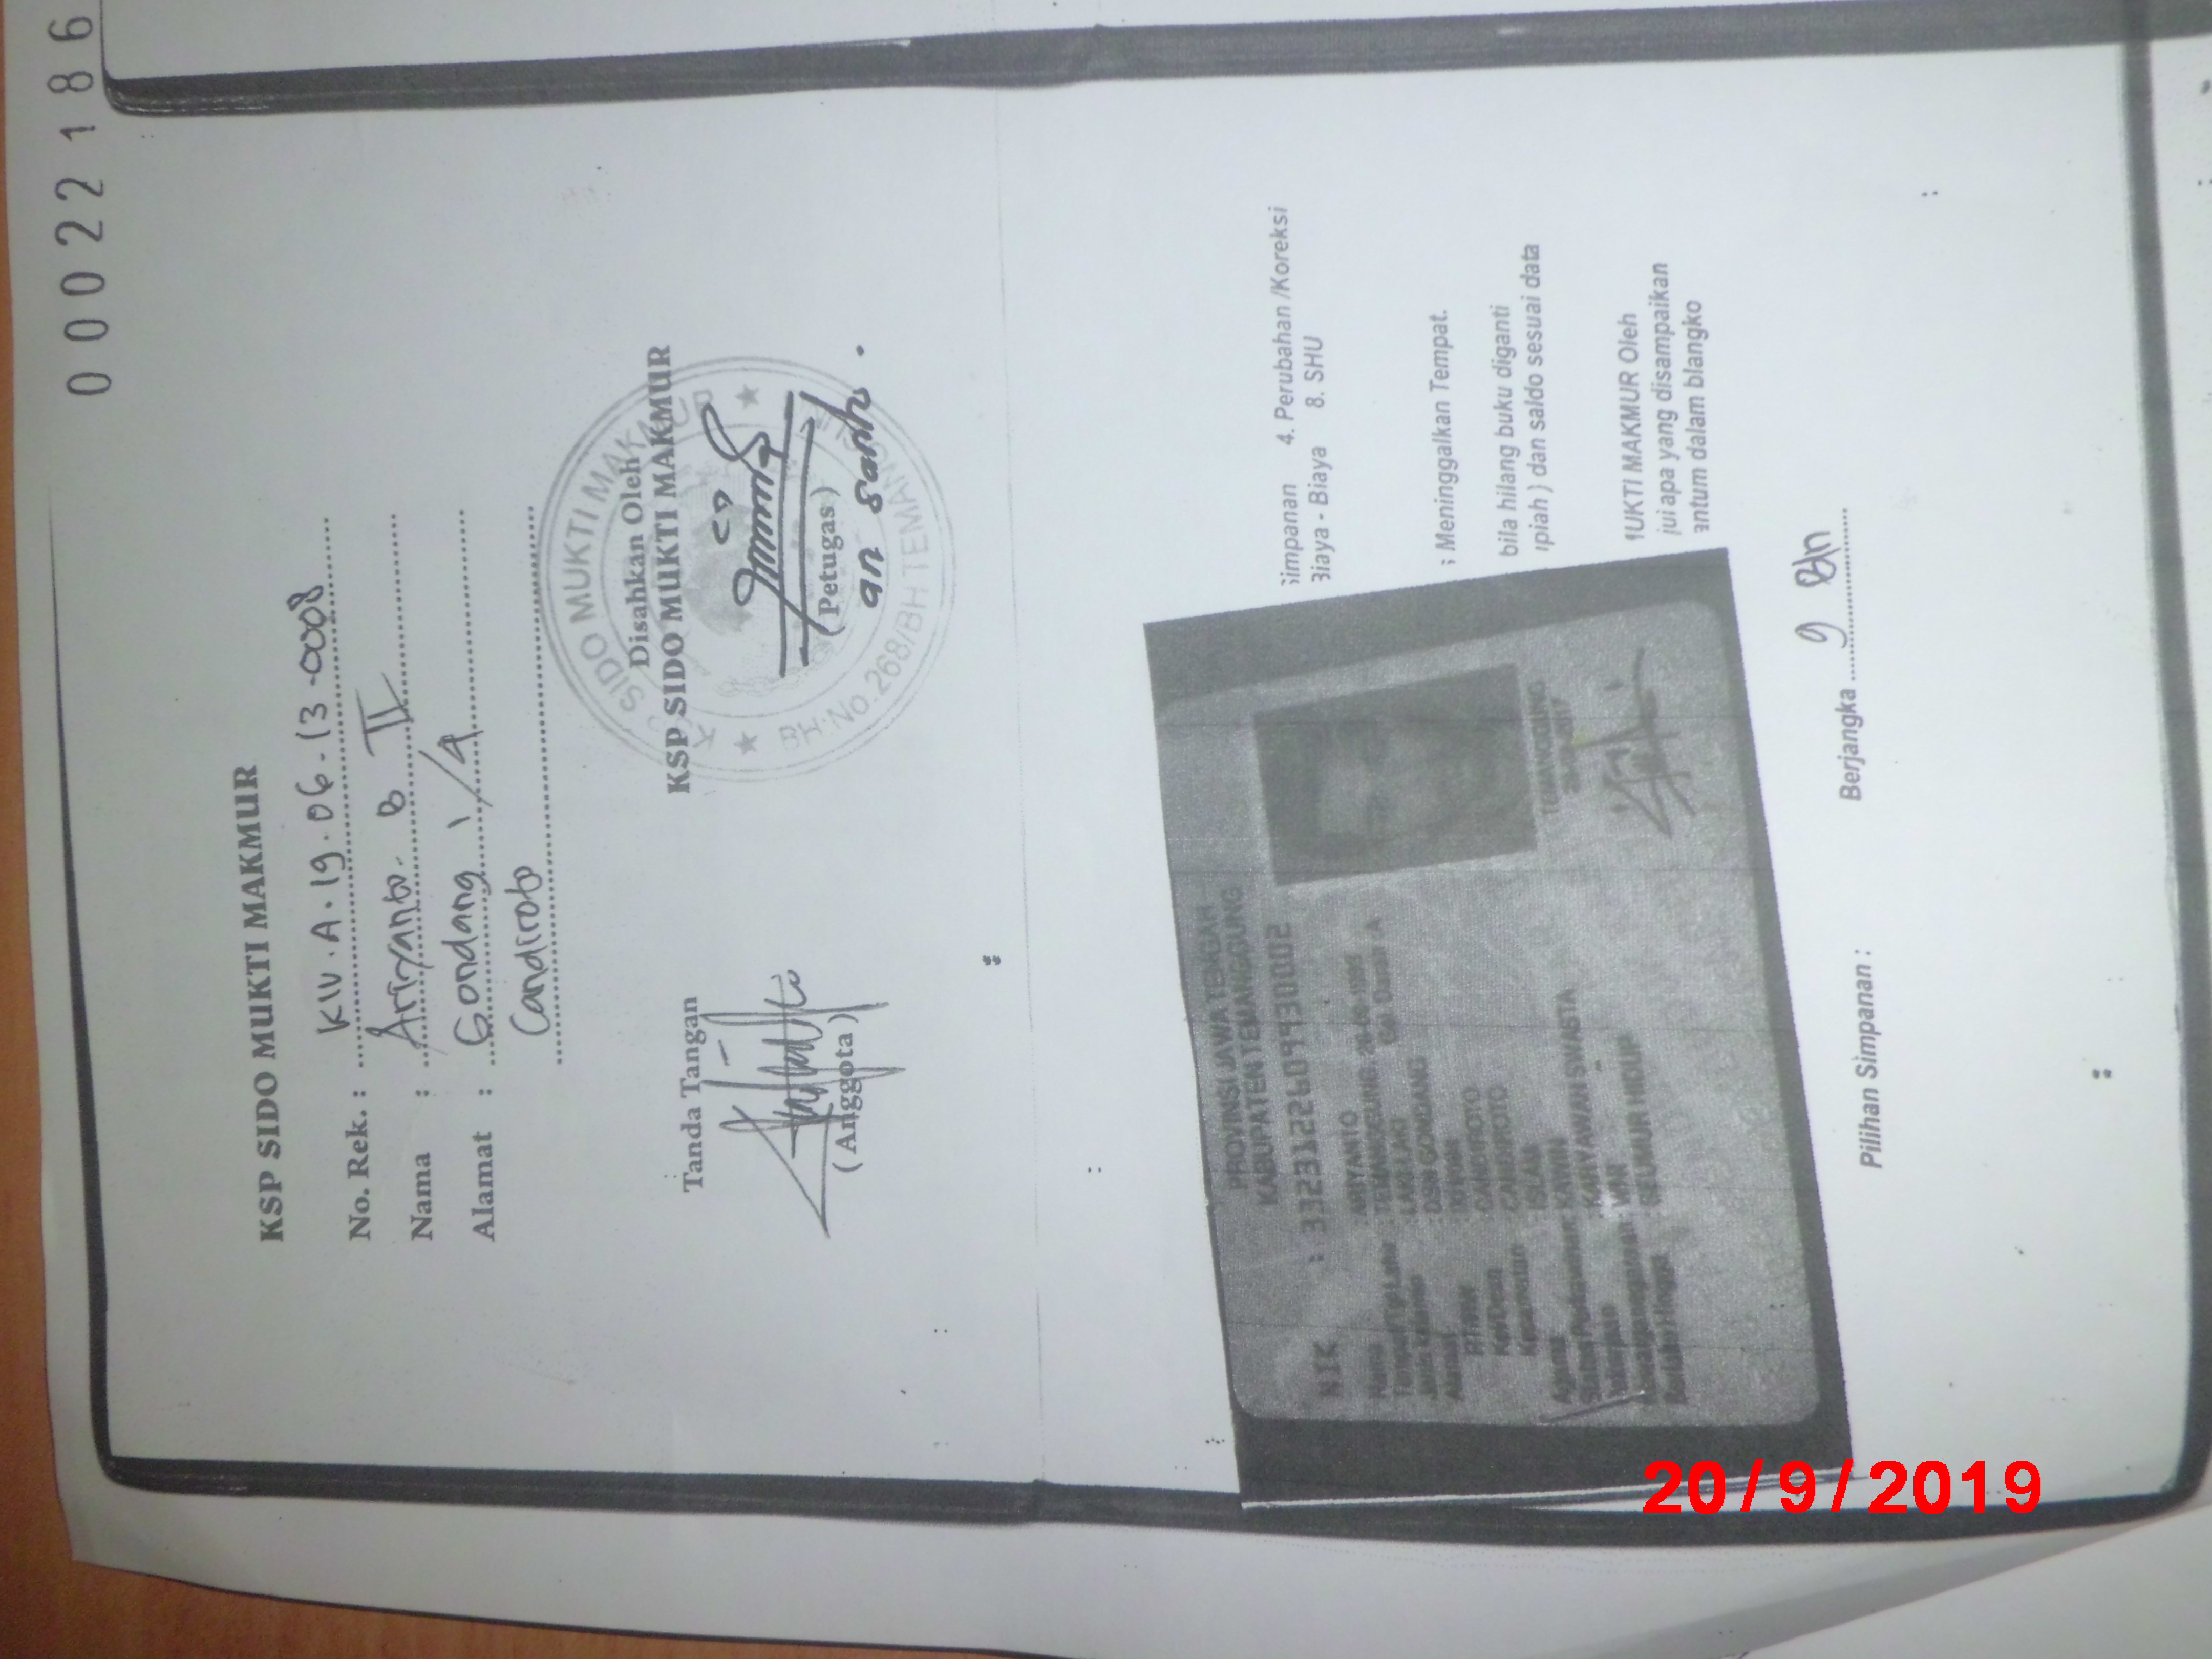 00022186
KSP SIDO MUKTI MAKMUR
No. Rek. : KW.A.19.06.13-0008
Nama : Ariyanto. B II
Alamat : Gondang 1/4
Candiroto
Tanda Tangan
(Anggota)
Disahkan Oleh
KSP SIDO MUKTI MAKMUR
(Petugas)
an Sarah
KSP SIDO MUKTI MAKMUR
BH.No.268/BH TEMANGGUNG
Simpanan 4. Perubahan /Koreksi
Biaya - Biaya 8. SHU
Meninggalkan Tempat.
bila hilang buku diganti
ipiah ) dan saldo sesuai data
MUKTI MAKMUR Oleh
jui apa yang disampaikan
antum dalam blangko
PROVINSI JAWA TENGAH
KABUPATEN TEMANGGUNG
NIK : 3323122609930002
Nama : ARIYANTO
: LAKI-LAKI
Alamat : DSN GONDANG
RT/RW
Kel/Desa : CANDIROTO
Kecamatan : CANDIROTO
Agama : ISLAM
Status Perkawinan: KAWIN
Pekerjaan : KARYAWAN SWASTA
Kewarganegaraan: WNI
Berlaku Hingga : SEUMUR HIDUP
TEMANGGUNG
Pilihan Simpanan : Berjangka 9 Bln
20/9/2019